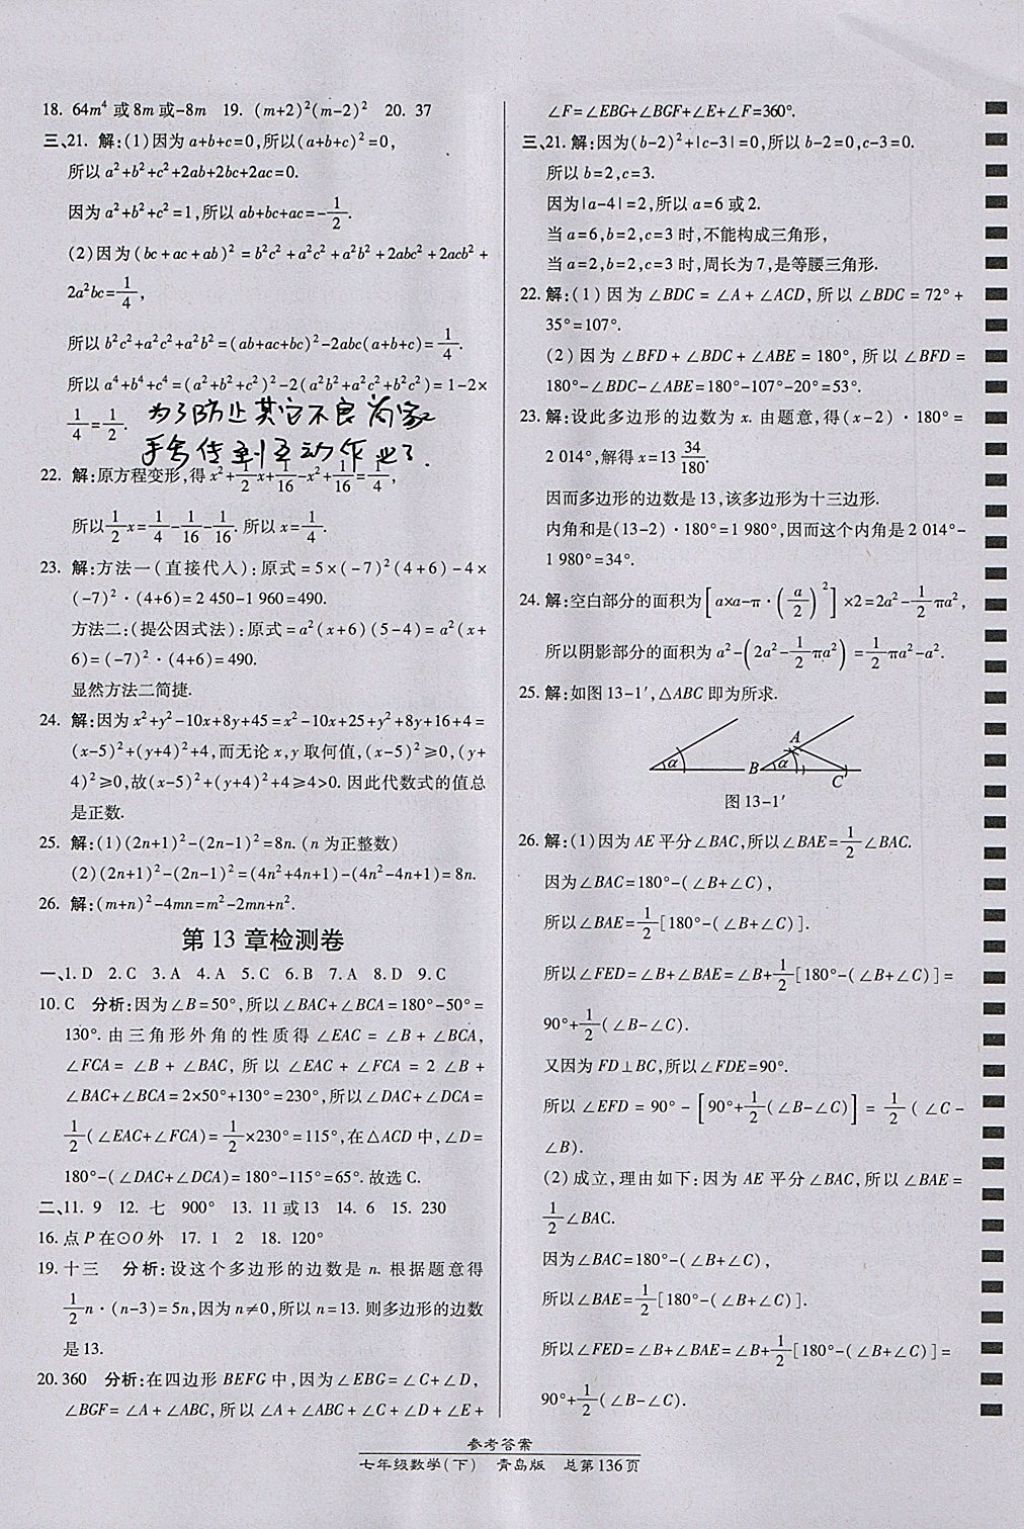 18. 64m⁴ 或 8m 或-8m 19. (m+2)²(m-2)² 20. 37
三、21. 解:(1)因为 a+b+c=0,所以(a+b+c)²=0,
所以 a²+b²+c²+2ab+2bc+2ac=0.
因为 a²+b²+c²=1,所以 ab+bc+ac=-1/2.
(2)因为(bc+ac+ab)²=b²c²+a²c²+a²b²+2abc²+2acb²+
2a²bc=1/4,
所以 b²c²+a²c²+a²b²=(ab+ac+bc)²-2abc(a+b+c)=1/4.
所以 a⁴+b⁴+c⁴=(a²+b²+c²)²-2(a²b²+a²c²+b²c²)=1-2×
1/4=1/2.
为了防止其它不良商家
手舍传到互动作业了.
22. 解:原方程变形,得 x²+1/2x+1/16-x²+1/16=1/4,
所以1/2x=1/4-1/16-1/16. 所以 x=1/4.
23. 解:方法一(直接代人):原式=5×(-7)²(4+6)-4×
(-7)²·(4+6)=2 450-1 960=490.
方法二:(提公因式法):原式=a²(x+6)(5-4)=a²(x+
6)=(-7)²·(4+6)=490.
显然方法二简捷.
24. 解:因为 x²+y²-10x+8y+45=x²-10x+25+y²+8y+16+4=
(x-5)²+(y+4)²+4,而无论 x,y 取何值,(x-5)²≥0,(y+
4)²≥0,故(x-5)²+(y+4)²+4≥4>0. 因此代数式的值总
是正数.
25. 解:(1)(2n+1)²-(2n-1)²=8n. (n 为正整数)
(2)(2n+1)²-(2n-1)²=(4n²+4n+1)-(4n²-4n+1)=8n.
26. 解:(m+n)²-4mn=m²-2mn+n².
第 13 章检测卷
一、1. D 2. C 3. A 4. A 5. C 6. B 7. A 8. D 9. C
10. C 分析:因为∠B=50°,所以∠BAC+∠BCA=180°-50°=
130°. 由三角形外角的性质得∠EAC=∠B+∠BCA,
∠FCA=∠B+∠BAC,所以∠EAC+∠FCA=2∠B+
∠BAC+∠BCA=2×50°+130°=230°,所以∠DAC+∠DCA=
1/2(∠EAC+∠FCA)=1/2×230°=115°,在△ACD 中,∠D=
180°-(∠DAC+∠DCA)=180°-115°=65°. 故选 C.
二、11. 9 12. 七 900° 13. 11 或 13 14. 6 15. 230
16. 点 P 在⊙O 外 17. 1 2 18. 120°
19. 十三 分析:设这个多边形的边数是 n. 根据题意得
1/2n·(n-3)=5n,因为 n≠0,所以 n=13. 则多边形的边数
是 13.
20. 360 分析:在四边形 BEFG 中,因为∠EBG=∠C+∠D,
∠BGF=∠A+∠ABC,所以∠A+∠ABC+∠C+∠D+∠E+
∠F=∠EBG+∠BGF+∠E+∠F=360°.
三、21. 解:因为(b-2)²+|c-3|=0,所以 b-2=0,c-3=0.
所以 b=2,c=3.
因为|a-4|=2,所以 a=6 或 2.
当 a=6,b=2,c=3 时,不能构成三角形,
当 a=2,b=2,c=3 时,周长为 7,是等腰三角形.
22. 解:(1)因为∠BDC=∠A+∠ACD,所以∠BDC=72°+
35°=107°.
(2)因为∠BFD+∠BDC+∠ABE=180°,所以∠BFD=
180°-∠BDC-∠ABE=180°-107°-20°=53°.
23. 解:设此多边形的边数为 x. 由题意,得(x-2)·180°=
2 014°,解得 x=13 34/180.
因而多边形的边数是 13,该多边形为十三边形.
内角和是(13-2)·180°=1 980°,因而这个内角是 2 014°-
1 980°=34°.
24. 解:空白部分的面积为[a×a-π·(a/2)²]×2=2a²-1/2πa²,
所以阴影部分的面积为 a²-(2a²-1/2πa²)=1/2πa²-a².
25. 解:如图 13-1′,△ABC 即为所求.
α B α A C
图 13-1′
26. 解:(1)因为 AE 平分∠BAC,所以∠BAE=1/2∠BAC.
因为∠BAC=180°-(∠B+∠C),
所以∠BAE=1/2[180°-(∠B+∠C)].
所以∠FED=∠B+∠BAE=∠B+1/2[180°-(∠B+∠C)]=
90°+1/2(∠B-∠C).
又因为 FD⊥BC,所以∠FDE=90°.
所以∠EFD=90°-[90°+1/2(∠B-∠C)]=1/2(∠C-
∠B).
(2)成立,理由如下:因为 AE 平分∠BAC,所以∠BAE=
1/2∠BAC.
因为∠BAC=180°-(∠B+∠C),
所以∠BAE=1/2[180°-(∠B+∠C)].
所以∠FED=∠B+∠BAE=∠B+1/2[180°-(∠B+∠C)]=
90°+1/2(∠B-∠C).
参考答案
七年级数学(下) 青岛版 总第136页